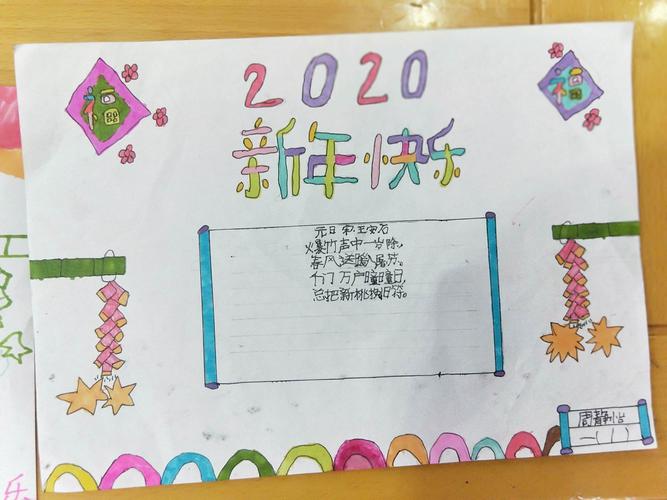 福
2020
福
新年快乐
元日 宋.王安石
爆竹声中一岁除,
春风送暖入屠苏。
千门万户曈曈日,
总把新桃换旧符。
周静怡
一(1)
乐